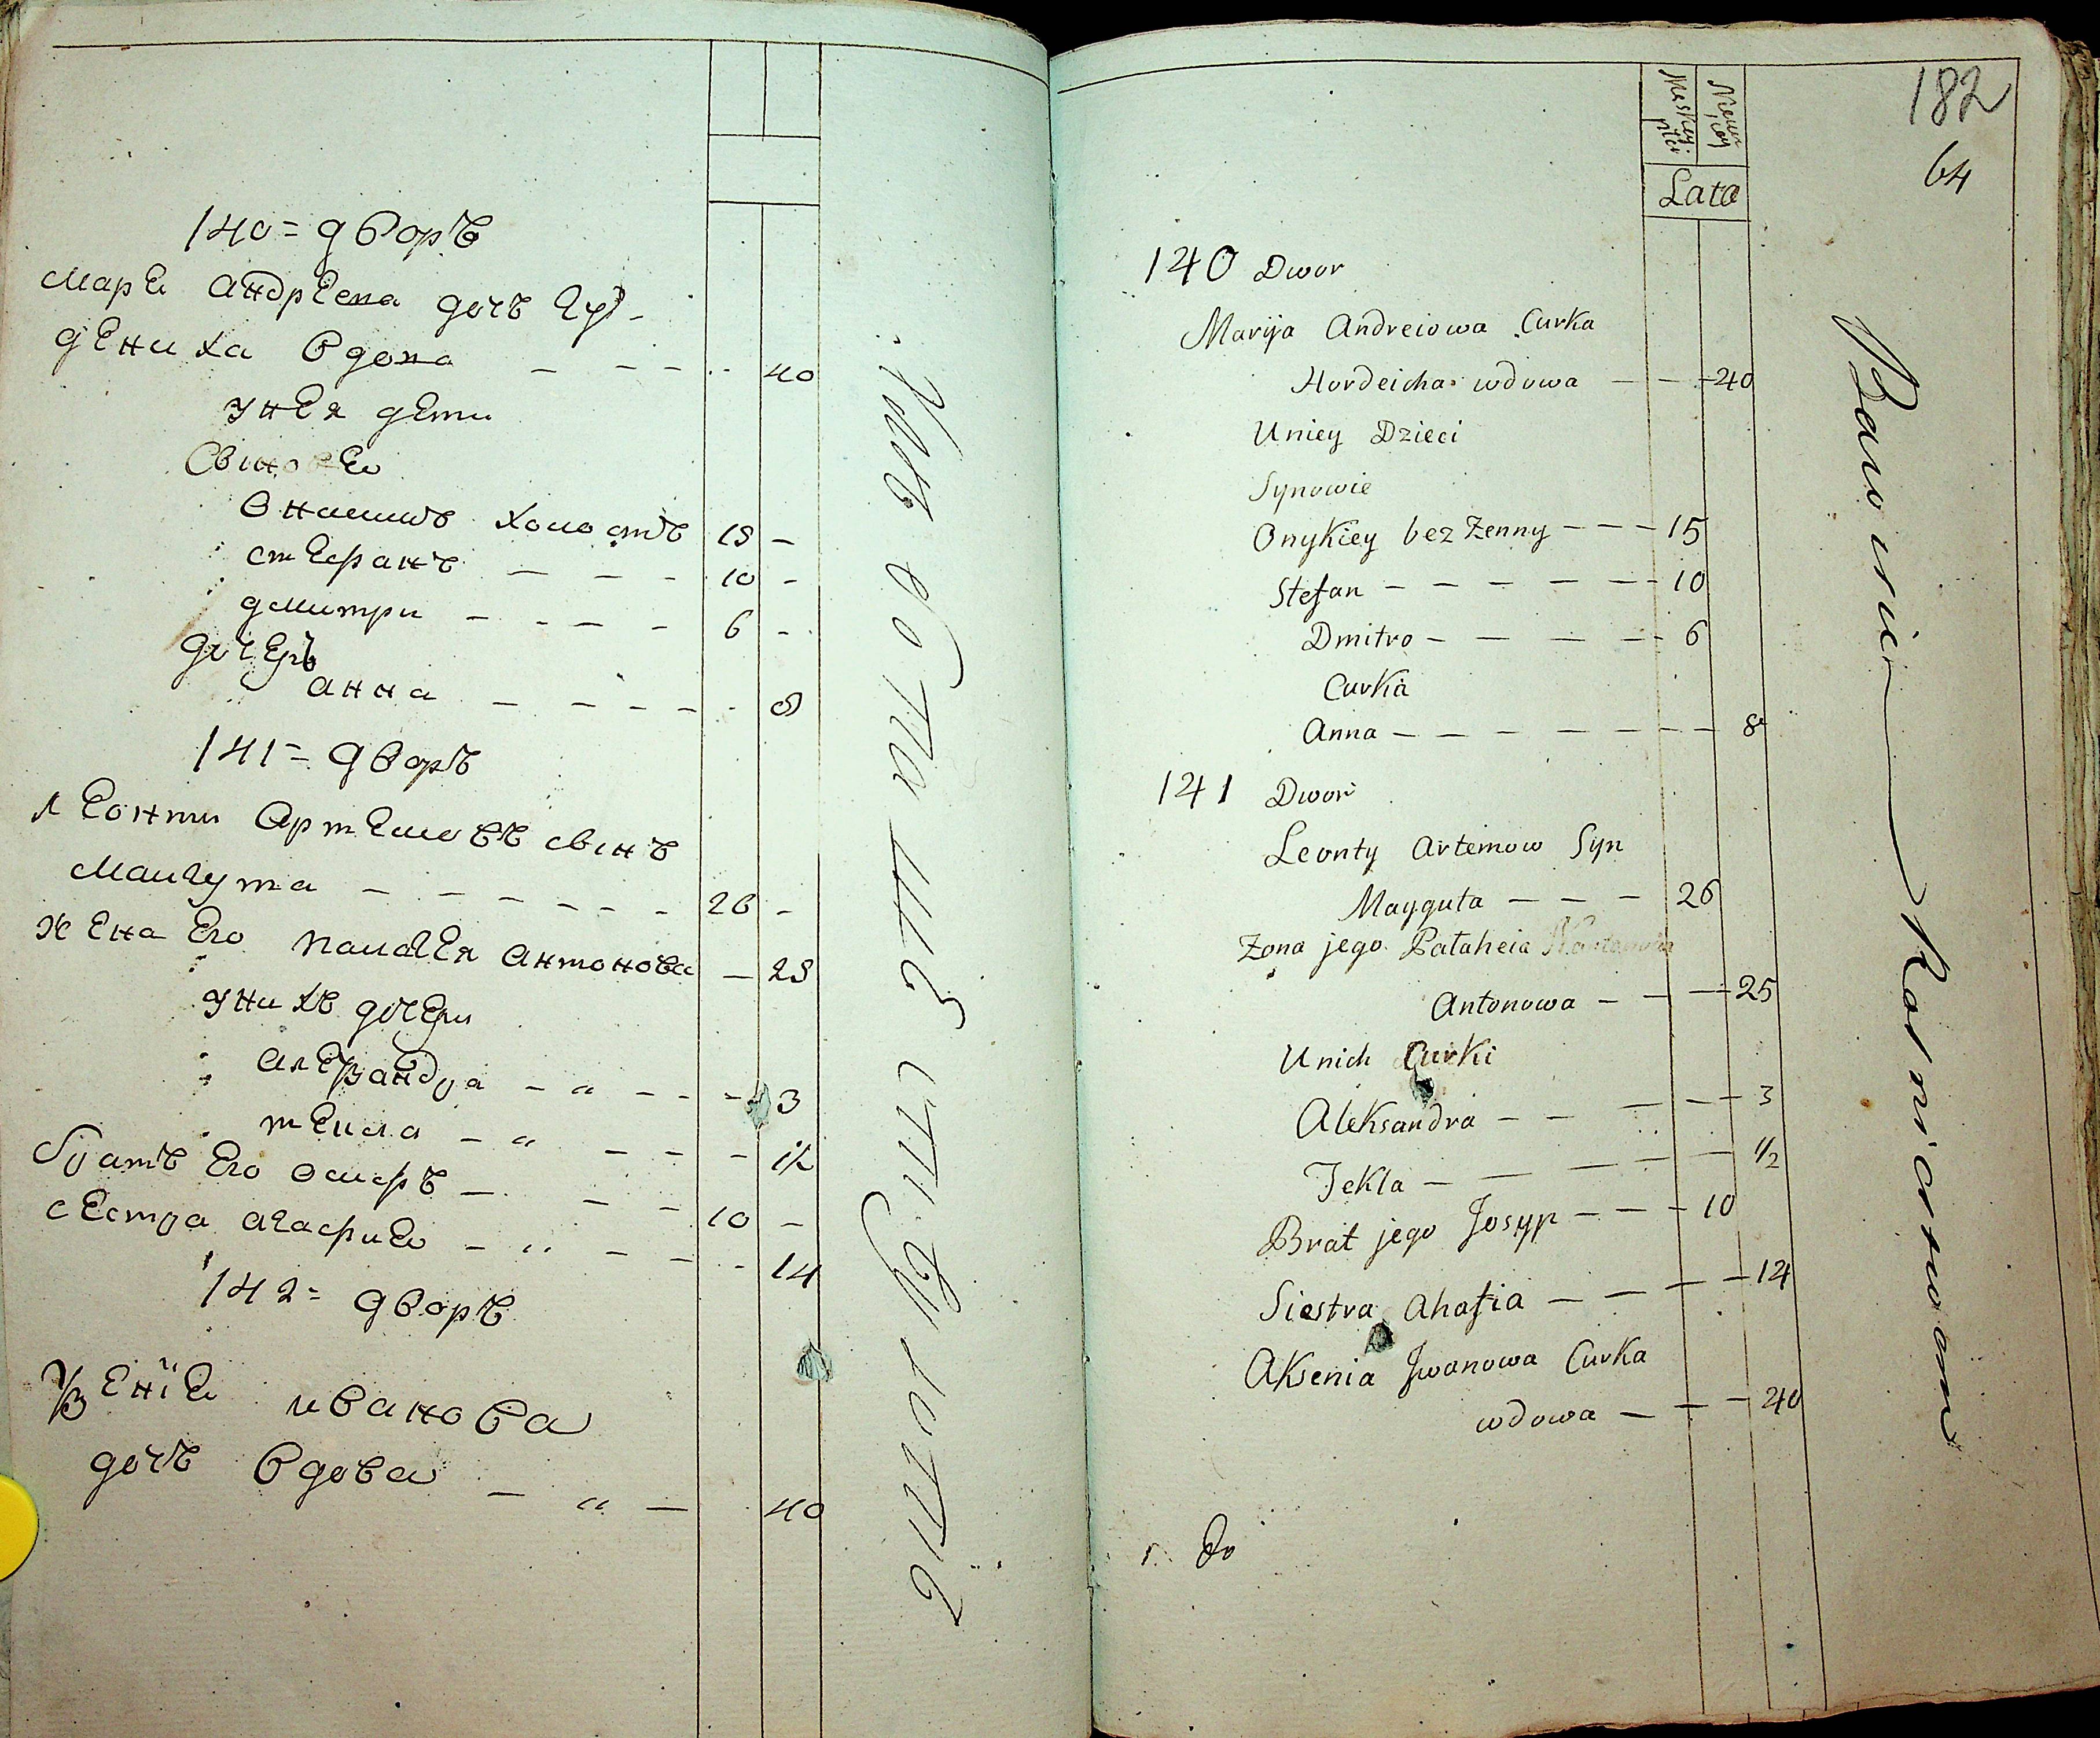 140 = дворъ
Марѣ андрѣева дочь гур-
денѣха вдова — — — 40
унея дети
Сыновѣ
Оникиѣ холостъ 15 —
стефанъ — — — 10 -
дмитри — — — — 6 -
дочерь
анна — — — — — 8
141 = дворъ
леонти Артемовъ сынъ
Майгута — — — — — — 26 -
жена его палагея антонова — 25
унихъ дочери
алеѯандра — „ — — — 3
текла — „ — — — 1/2
братъ его осифъ — — — 10 —
сестра агафиѣ — „ — — — 14
142 = дворъ
Ѯенїѣ иванова
дочь вдова — „ — 40
182
64
Męskey płci
Niewie ściey
Lata
140 Dwor
Marija Andreiowa Curka
Hordeicha wdowa — — — 40
Uniey Dzieci
Synowie
Onykiey bez Zenny — — — 15
Stefan — — — — — — 10
Dmitro — — — — — 6
Curka
Anna — — — — — — — 8
141 Dwor
Leonty Artemow Syn
Mayguta — — — 26
Zona jego Pałaheia
Antonowa — — — 25
Unich Curki
Aleksandra — — — — — 3
Tekla — — — — — — 1/2
Brat jego Josyp — — — — 10
Siestra Ahafia — — — — 14
Aksenia Jwanowa Curka
wdowa — — — 40
do